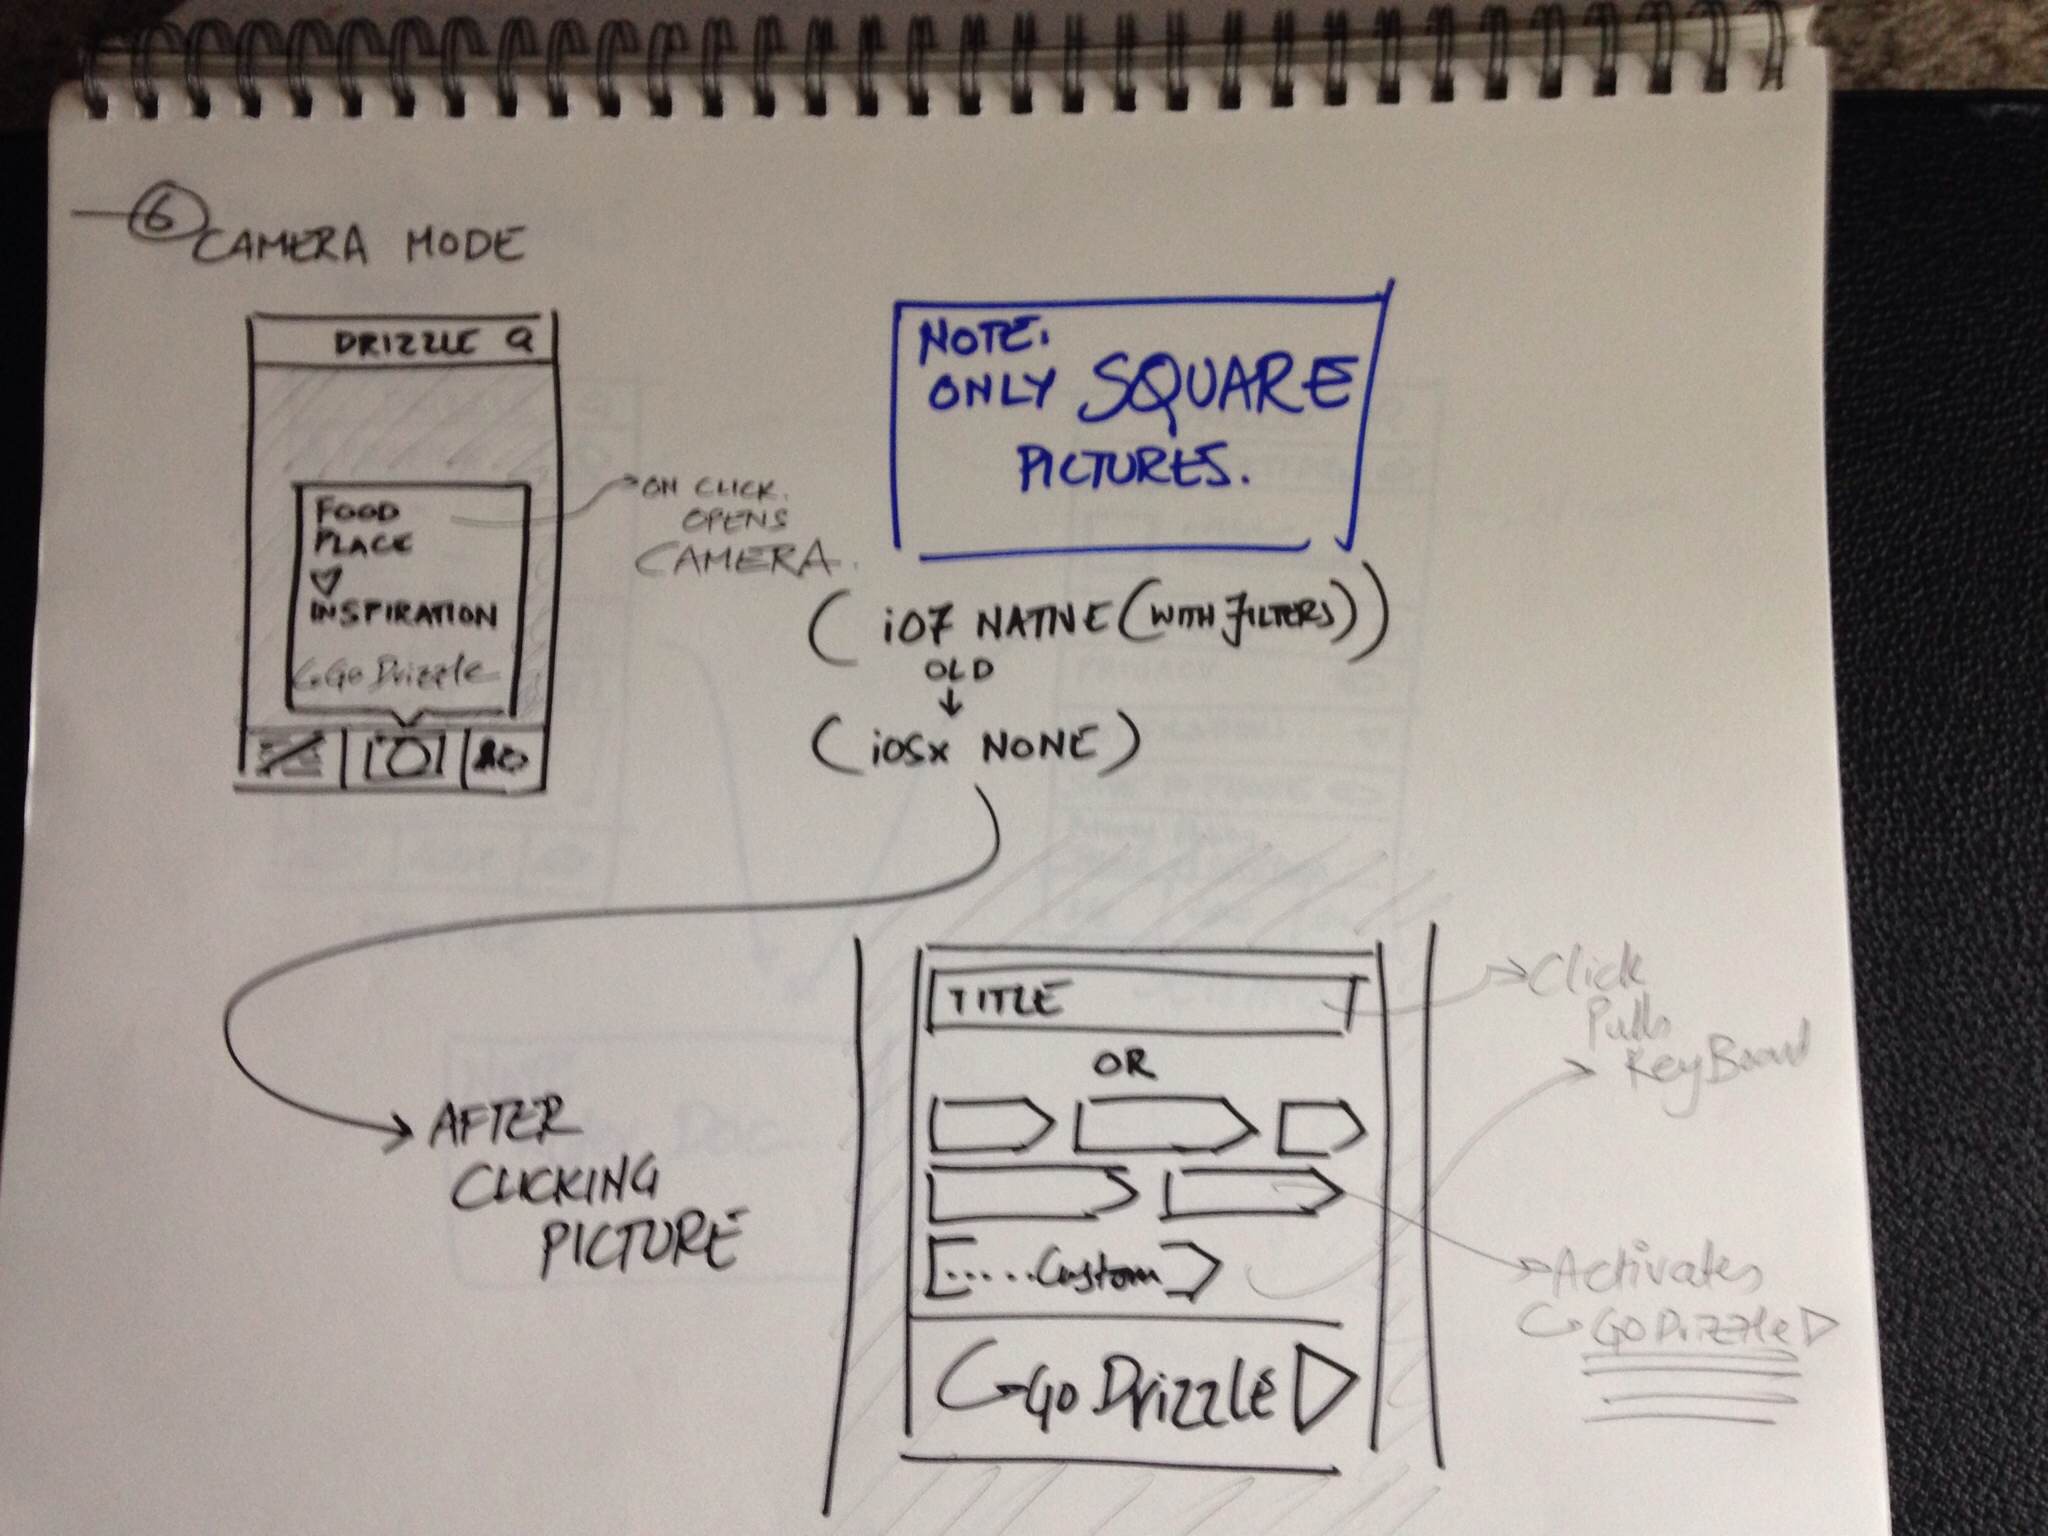 6
CAMERA MODE
DRIZZLE
FOOD
PLACE
♡
INSPIRATION
Go Drizzle
ON CLICK.
OPENS
CAMERA.
NOTE.
ONLY SQUARE
PICTURES.
(iO7 NATIVE (WITH FILTERS))
OLD
↓
(iOSx NONE)
AFTER
CLICKING
PICTURE
TITLE
OR
.....Custom
Go Drizzle
Click
Pulls
KeyBoard
Activates
GO Drizzle